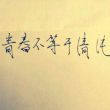 青春不等于清纯